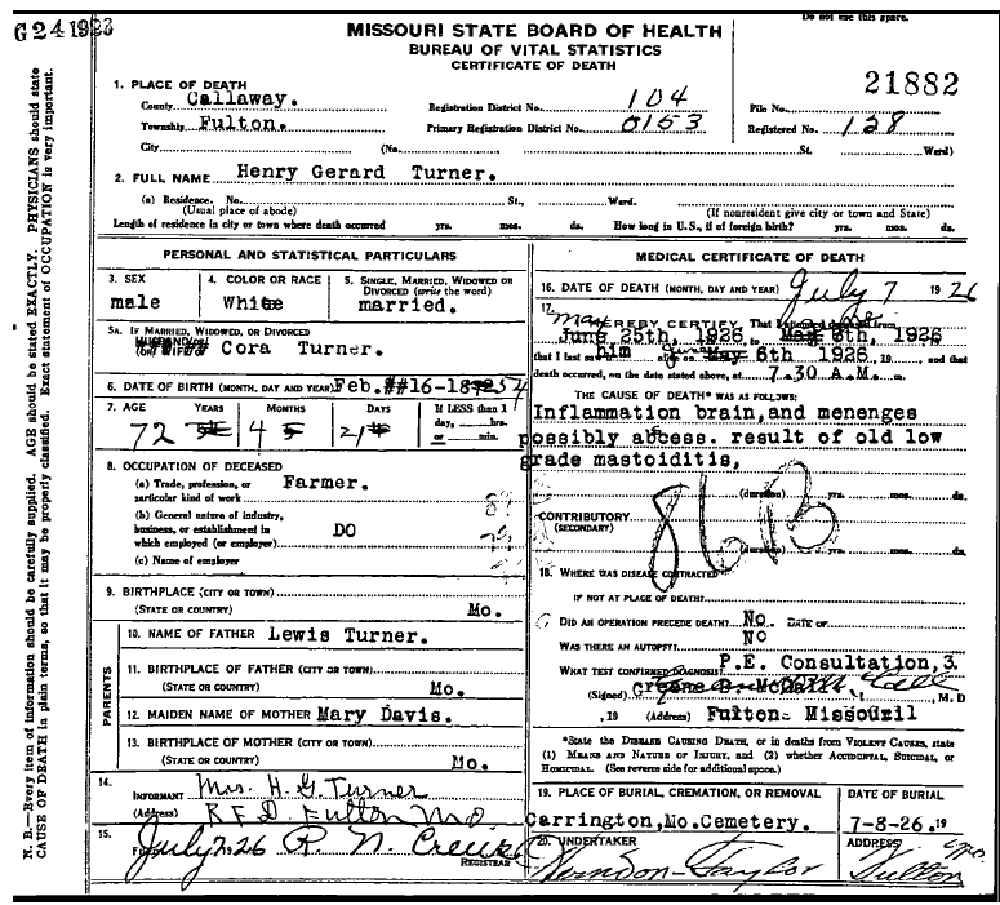 Do not use this space.
G 24 1923
MISSOURI STATE BOARD OF HEALTH
BUREAU OF VITAL STATISTICS
CERTIFICATE OF DEATH
21882
1. PLACE OF DEATH
County Callaway. Registration District No. 104 File No.
Township Fulton. Primary Registration District No. 0153 Registered No. 138
City (No. St. Ward)
2. FULL NAME Henry Gerard Turner.
(a) Residence. No. St., Ward.
(Usual place of abode) (If nonresident give city or town and State)
Length of residence in city or town where death occurred yrs. mos. ds. How long in U.S., if of foreign birth? yrs. mos. ds.
PERSONAL AND STATISTICAL PARTICULARS
3. SEX 4. COLOR OR RACE 5. SINGLE, MARRIED, WIDOWED OR
DIVORCED (write the word)
male White married.
5A. IF MARRIED, WIDOWED, OR DIVORCED
HUSBAND of
(OR) WIFE of Cora Turner.
6. DATE OF BIRTH (MONTH, DAY AND YEAR) Feb. ##16-18 54
7. AGE YEARS MONTHS DAYS If LESS than 1
day, hrs.
or min.
72 4 21
8. OCCUPATION OF DECEASED
(a) Trade, profession, or
particular kind of work Farmer.
(b) General nature of industry,
business, or establishment in
which employed (or employer) DO
(c) Name of employer
9. BIRTHPLACE (CITY OR TOWN)
(STATE OR COUNTRY) Mo.
PARENTS
10. NAME OF FATHER Lewis Turner.
11. BIRTHPLACE OF FATHER (CITY OR TOWN)
(STATE OR COUNTRY) Mo.
12. MAIDEN NAME OF MOTHER Mary Davis.
13. BIRTHPLACE OF MOTHER (CITY OR TOWN)
(STATE OR COUNTRY) Mo.
14.
INFORMANT Mrs. H. G. Turner
(Address) R F D. Fulton Mo.
15.
July 7 26 R. N. Crews
REGISTRAR
MEDICAL CERTIFICATE OF DEATH
16. DATE OF DEATH (MONTH, DAY AND YEAR) July 7 1926
17.
I HEREBY CERTIFY, That I attended deceased from
May June
June 25th, 1926, to 6th, 1926
that I last saw him alive on June 6th 1926, 19, and that
death occurred, on the date stated above, at 7.30 A.M. m.
THE CAUSE OF DEATH* WAS AS FOLLOWS:
Inflammation brain,and menenges
possibly abcess. result of old low
grade mastoiditis,
(duration) yrs. mos. ds.
86B
CONTRIBUTORY
(SECONDARY)
(duration) yrs. mos. ds.
18. WHERE WAS DISEASE CONTRACTED
IF NOT AT PLACE OF DEATH?
DID AN OPERATION PRECEDE DEATH? No. DATE OF
WAS THERE AN AUTOPSY? No
WHAT TEST CONFIRMED DIAGNOSIS? P.E. Consultation,3
(Signed) Greene D. McCall., M.D
, 19 (Address) Fulton- Missouril
*State the DISEASE CAUSING DEATH, or in deaths from VIOLENT CAUSES, state
(1) MEANS AND NATURE OF INJURY, and (2) whether ACCIDENTAL, SUICIDAL, or
HOMICIDAL. (See reverse side for additional space.)
19. PLACE OF BURIAL, CREMATION, OR REMOVAL DATE OF BURIAL
Carrington,Mo.Cemetery. 7-8-26. 19
20. UNDERTAKER ADDRESS
Herndon-Taylor Fulton Mo.
N. B.—Every item of information should be carefully supplied. AGE should be stated EXACTLY. PHYSICIANS should state
CAUSE OF DEATH in plain terms, so that it may be properly classified. Exact statement of OCCUPATION is very important.